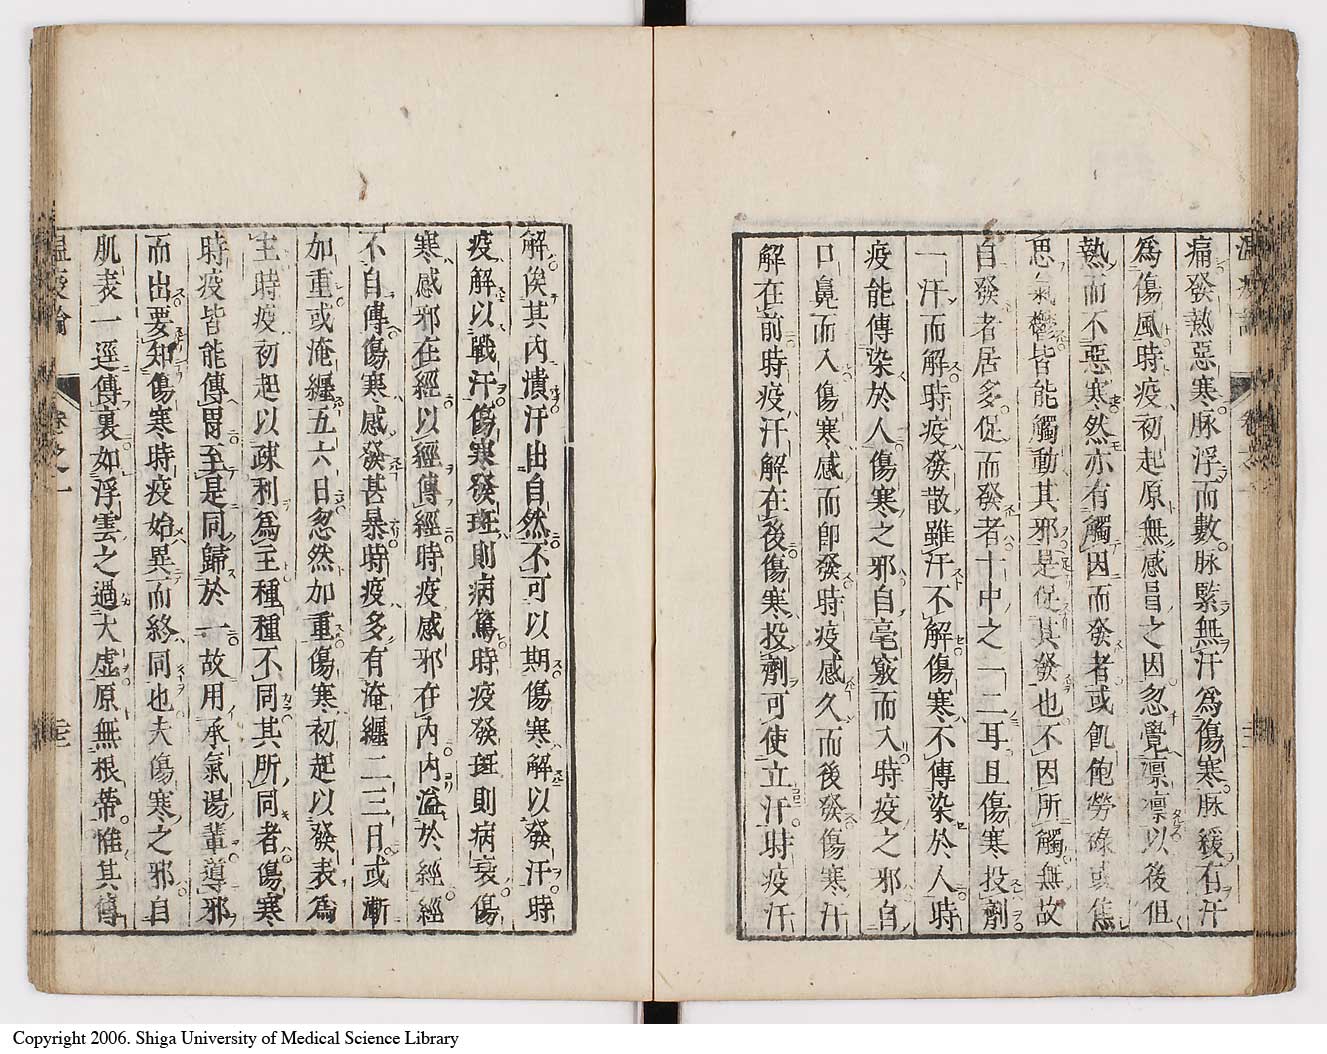 痛發熱惡寒脉浮而數脉緊無汗爲傷寒脉緩有汗
爲傷風時疫初起原無感冒之因忽覺凛凛以後但
熱而不惡寒然亦有觸因而發者或飢飽勞碌或焦
思氣鬱皆能觸動其邪是促其發也不因所觸無故
自發者居多促而發者十中之一二耳且傷寒投劑
一汗而解時疫發散雖汗不解傷寒不傳染於人時
疫能傳染於人傷寒之邪自毫竅而入時疫之邪自
口鼻而入傷寒感而即發時疫感久而後發傷寒汗
解在前時疫汗解在後傷寒投劑可使立汗時疫汗
解俟其内潰汗出自然不可以期傷寒解以發汗時
疫解以戰汗傷寒發斑則病篤時疫發斑則病衰傷
寒感邪在經以經傳經時疫感邪在内内溢於經經
不自傳傷寒感發甚暴時疫多有淹纏二三日或漸
加重或淹纏五六日忽然加重傷寒初起以發表爲
主時疫初起以疎利爲主種種不同其所同者傷寒
時疫皆能傳胃至是同歸於一故用承氣湯輩導邪
而出要知傷寒時疫始異而終同也夫傷寒之邪自
肌表一逕傳裏如浮雲之過太虛原無根蒂惟其傳
溫疫論 卷之一
Copyright 2006. Shiga University of Medical Science Library